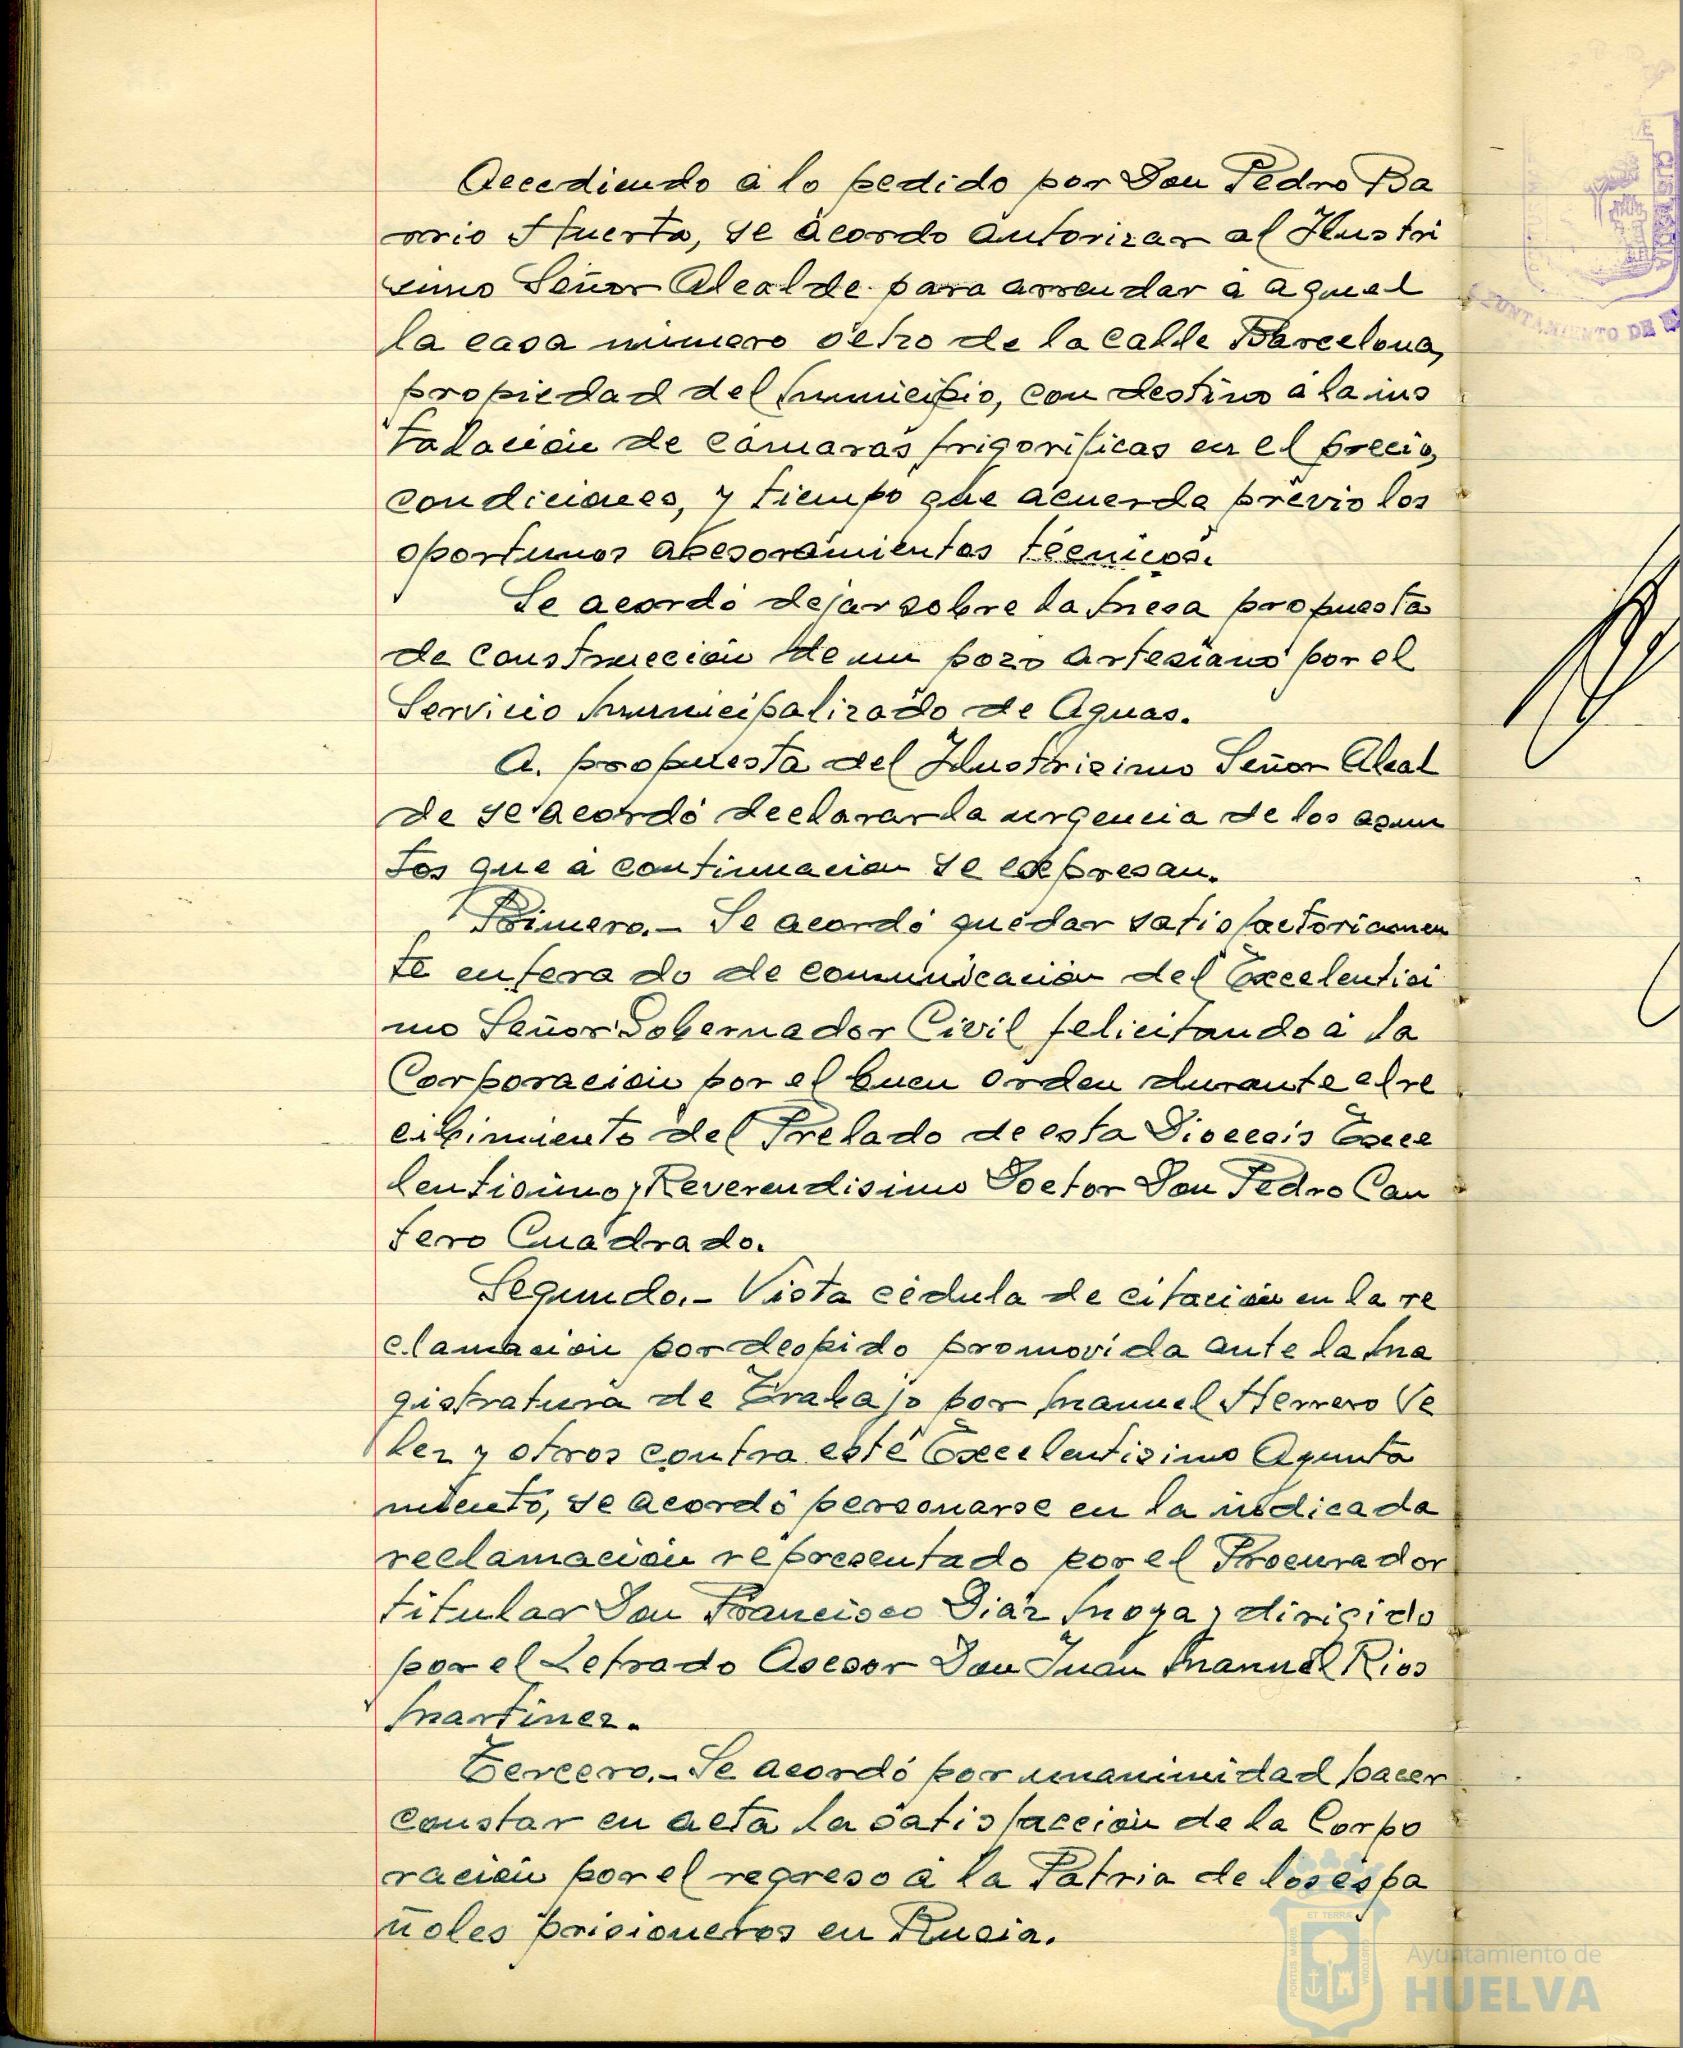 Accediendo á lo pedido por Don Pedro Ba
rrio Huerta, se acordo autorizar al Ilustri
simo Señor Alcalde para arrendar á aquel
la casa número ocho de la calle Barcelona,
propiedad del municipio, con destino á la ins
talación de cámaras frigoríficas en el precio,
condiciones, y tiempo que acuerda previo los
oportunos asesoramientos técnicos.
Se acordó dejar sobre la mesa propuesta
de construcción de un pozo artesiano por el
Servicio municipalizado de Aguas.
A. propuesta del Ilustrisimo Señor Alcal
de se acordó declarar la urgencia de los asun
tos que á continuacion se expresan.
Primero.- Se acordó quedar satisfactoriamen
te enterado de comunicación del Excelentisi
mo Señor Gobernador Civil felicitando á la
Corporación por el buen orden durante el re
cibimiento del Prelado de esta Diocesis Exce
lentisimo y Reverendisimo Doctor Don Pedro Can
tero Cuadrado.
Segundo.- Vista cédula de citación en la re
clamación por despido promovida ante la Ma
gistratura de Trabajo por Manuel Herrero Ve
lez y otros contra este Excelentisimo Ayunta
miento, se acordó personarse en la indicada
reclamación representado por el Procurador
titular Don Francisco Diáz Moya y dirigido
por el Letrado Asesor Don Juan Manuel Rios
Martinez.
Tercero.- Se acordó por unanimidad hacer
constar en acta la satisfacción de la Corpo
ración por el regreso á la Patria de los espa
ñoles prisioneros en Rusia.
CUSTODIA
AYUNTAMIENTO DE
PORTUS MARIS
ET TERRÆ
CUSTODIA
Ayuntamiento de
HUELVA